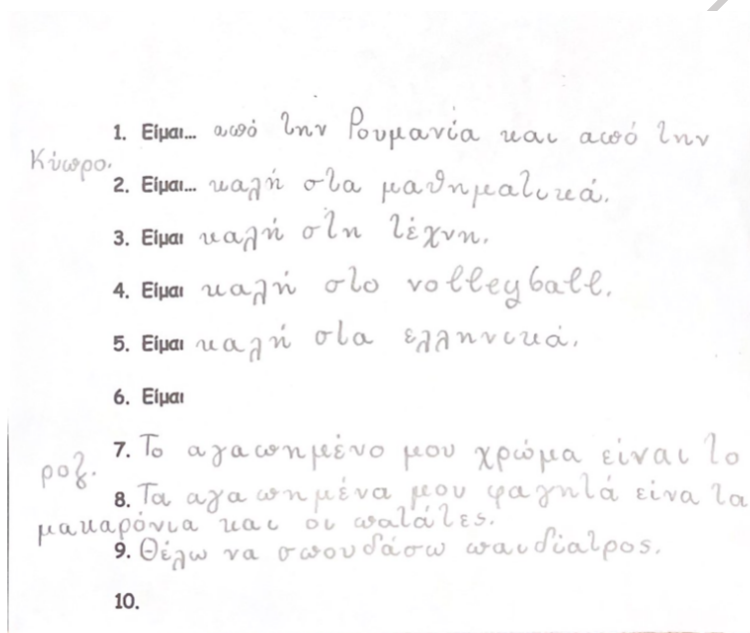 1. Είμαι... από την Ρουμανία και από την
Κύπρο.
2. Είμαι... καλή στα μαθηματικά.
3. Είμαι καλή στη τέχνη.
4. Είμαι καλή στο volleyball.
5. Είμαι καλή στα ελληνικά.
6. Είμαι
7. Το αγαπημένο μου χρώμα είναι το
ροζ.
8. Τα αγαπημένα μου φαγητά είνα τα
μακαρόνια και οι πατάτες.
9. Θέλω να σπουδάσω παιδίατρος.
10.